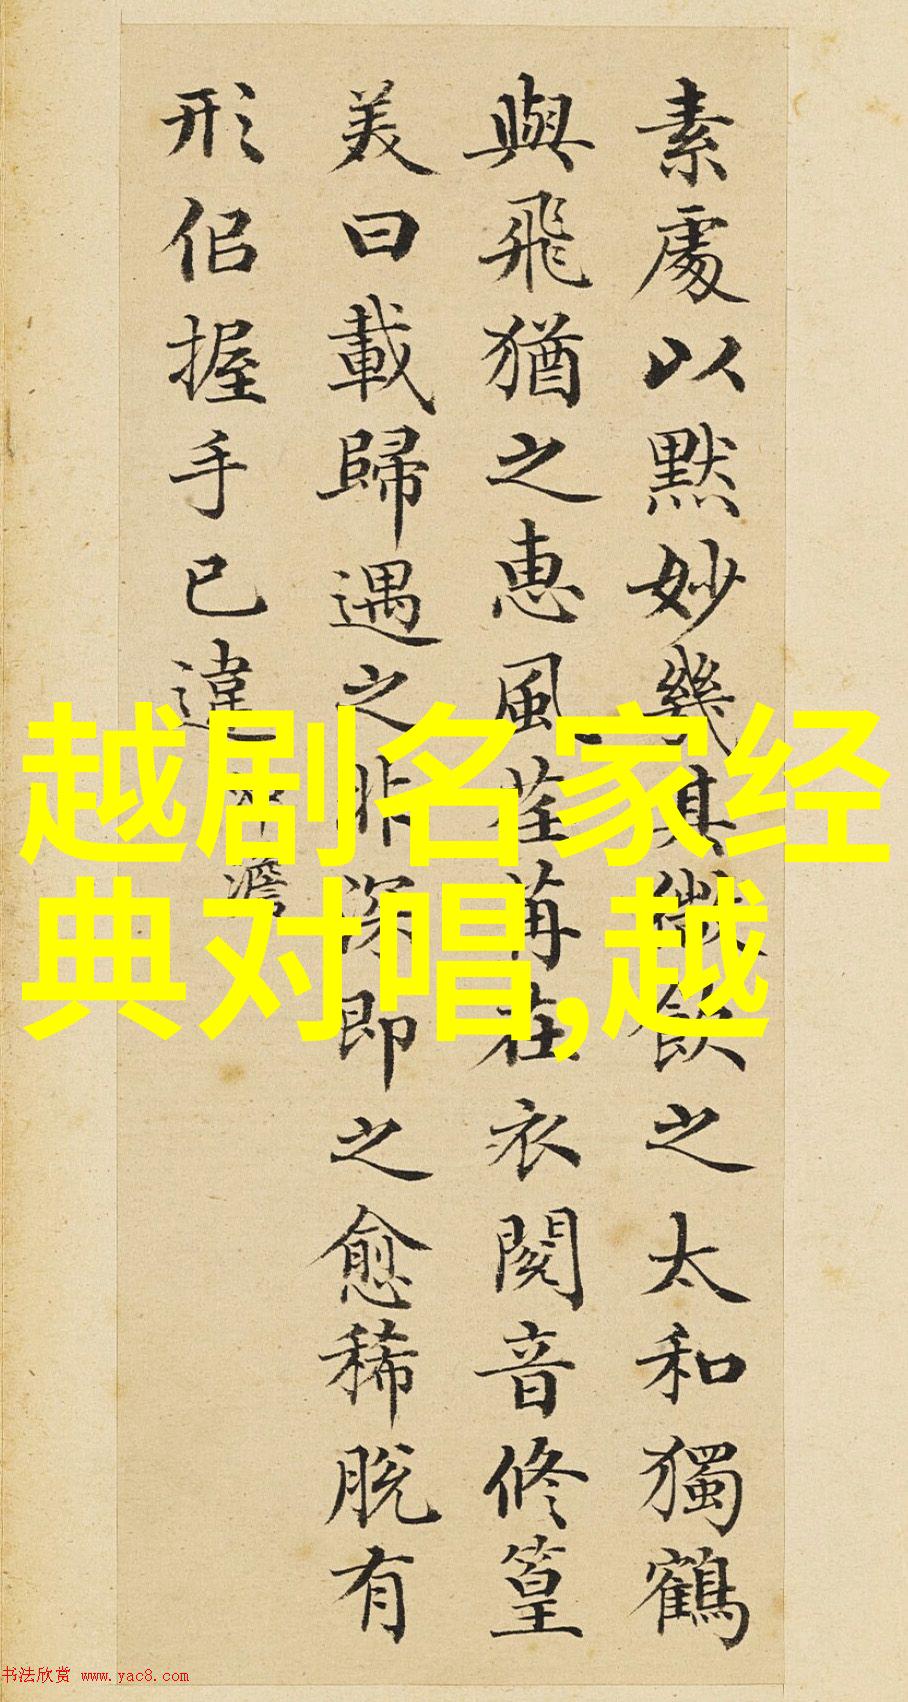 素處以默妙幾其微飲之太和獨鶴
與飛猶之惠風荏苒在衣閱音修篁
美曰載歸遇之非深即之愈稀脫有
形佀握手已違
澹
越剧名家经
典对唱,越
书法欣赏 www.yac8.com